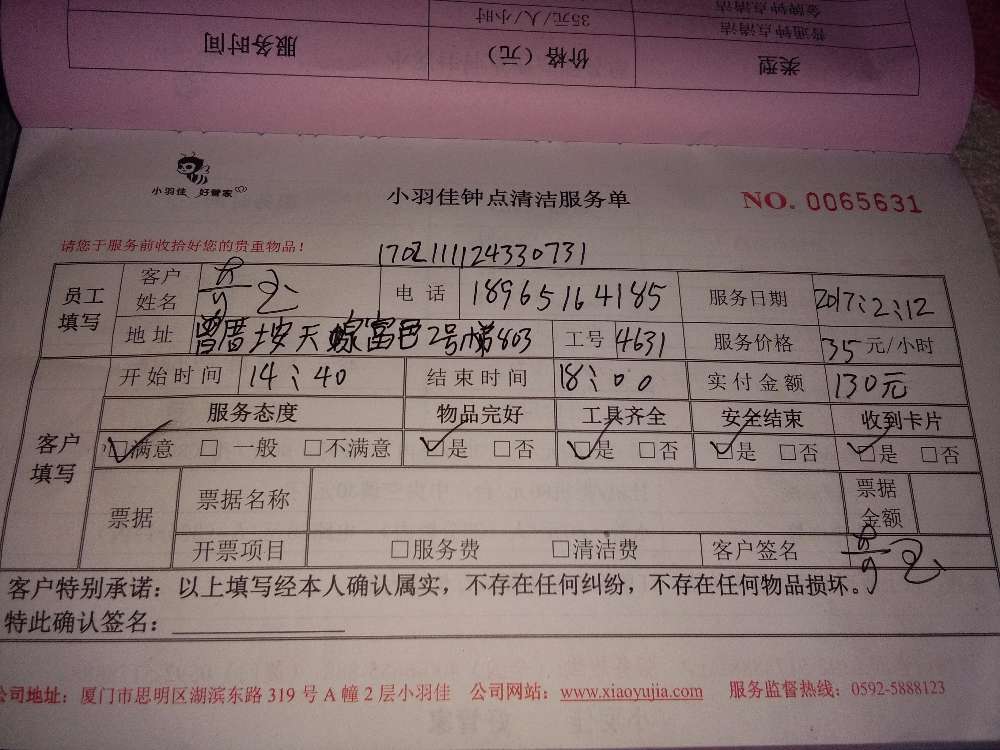 服务时间
价格（元）
类型
35元/人/小时
普通钟点清洁
金牌钟点清洁
小羽佳 好管家
小羽佳钟点清洁服务单
NO. 0065631
请您于服务前收拾好您的贵重物品！
170211124330731
员工填写
客户姓名
电话 18965164185
服务日期 2017:2:12
地址 曾厝垵天 2号梯803
工号 4631
服务价格 35元/小时
客户填写
开始时间 14:40
结束时间 18:00
实付金额 130元
服务态度 物品完好 工具齐全 安全结束 收到卡片
☑满意 □一般 □不满意 ☑是 □否 ☑是 □否 ☑是 □否 ☑是 □否
票据
票据名称
票据金额
开票项目 □服务费 □清洁费 客户签名
客户特别承诺：以上填写经本人确认属实，不存在任何纠纷，不存在任何物品损坏。
特此确认签名：
公司地址：厦门市思明区湖滨东路 319 号 A 幢 2 层小羽佳 公司网站：www.xiaoyujia.com 服务监督热线：0592-5888123